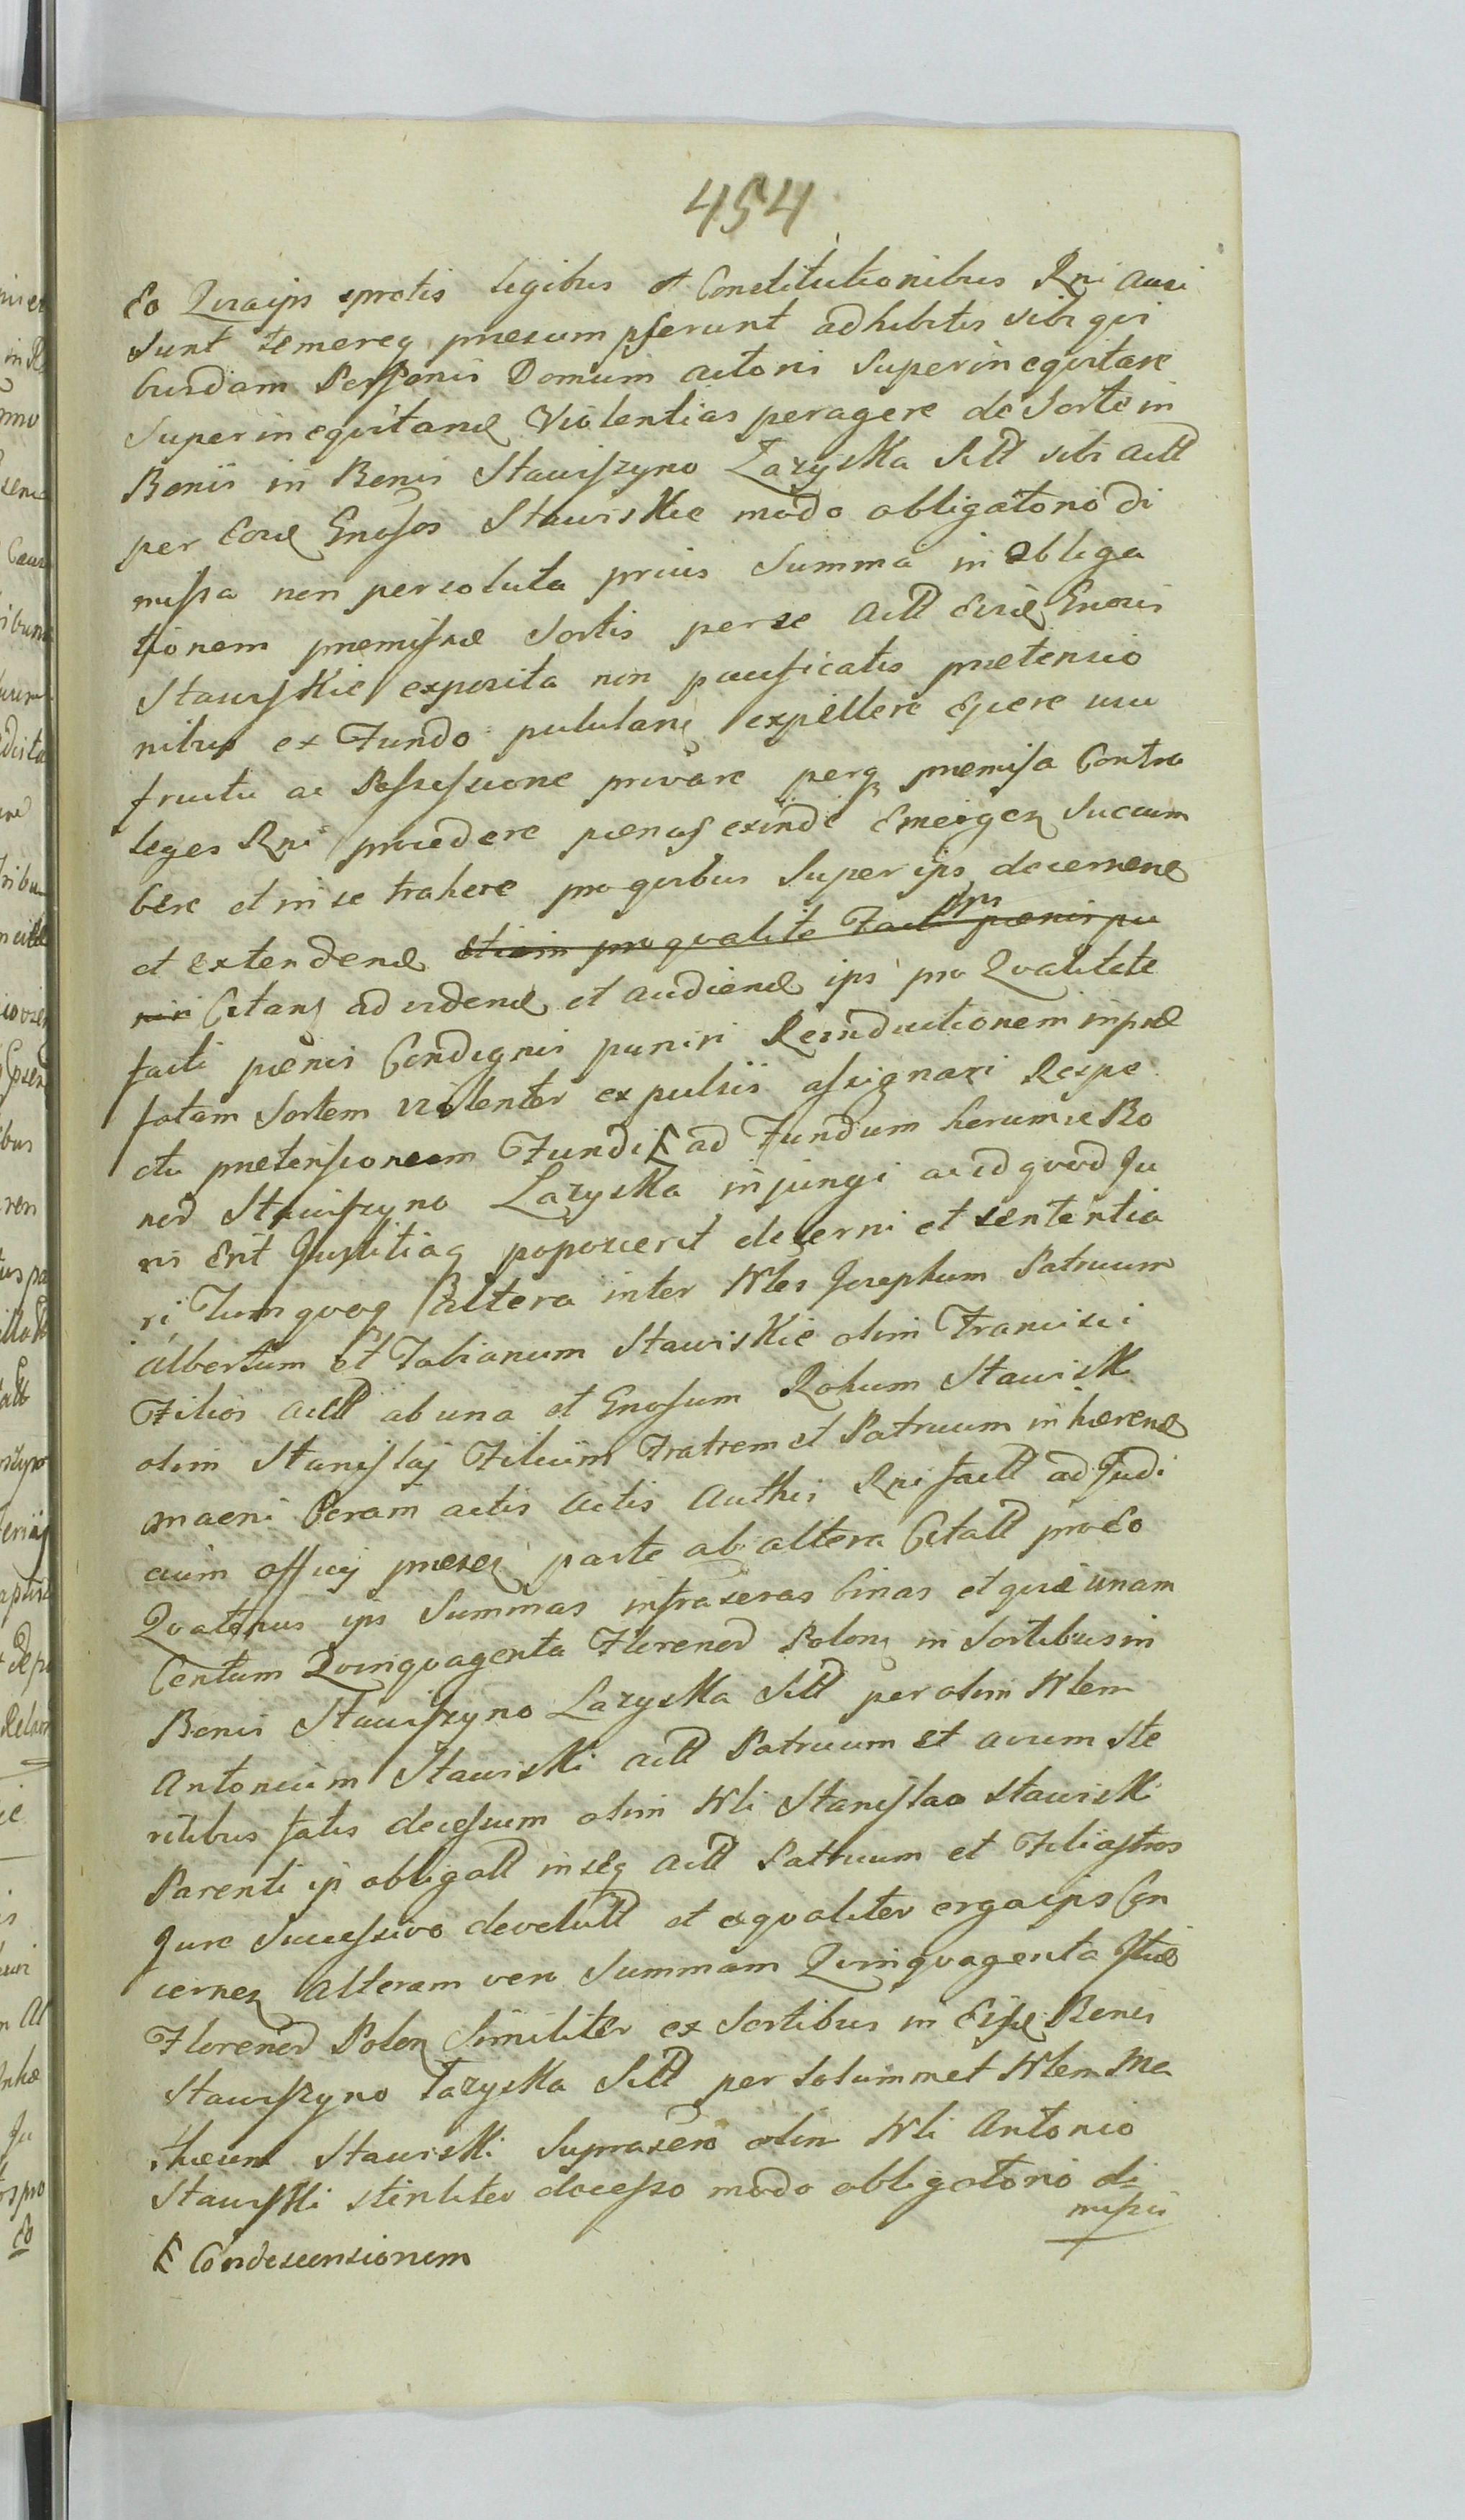 454
Eo Quia ips spretis Legibus et Constitutionibus Rni ausi
sunt temereq praesumpserunt adhibitis sibi qui
busdam Personis Domum actoris Superinequitare
Superinequitand Violentias peragere de Sorte in
Bonis in Bonis Stawiszyno Łazyska Sitt sibi actt
per Eosd Gnosos Stawiskie modo obligatorio di
missa non persoluta prius Summa in obliga
tionem praemissae Sortis per se actt Eisd Gnosis
Stawiskie exposita non pacificatis praetensio
nibus ex Fundo pululan expellere Ejicere usu
fructu ac Possessione privare perq praemissa Contra
leges Rni procedere paenas exinde Emergen Succum
bere et in se trahere pro quibus Super ips decernend
et extendend etiam pro qualite Facti ips paenis pu
niri Citans ad vidend et audiend ips pro Qualitate
facti paenis Condignis puniri Reinductionem in prae
fatam Sortem violenter expulsis assignari Respe
ctu praetensionem Fundi ad Fundum harumce Bo
nor Stawiszyno Łazyska injungi ac id quod Ju
ris Erit Justitiaq poposcerit decerni et sententia
ri Tum quoq Altera inter Nbles Josephum Patruum
Albertum et Fabianum Stawiskie olim Francisci
Filios actt ab una et Gnosum Rohum Stawisk
olim Stanislaj Filium Fratrem et Patruum inhaerend
Coram actis actis Authis Rni factt ad Judi
cium officij praesen parte ab altera Citatt pro Eo
Quatenus ips Summas infrascras binas et quid unam
Centum Quinquagenta Florenor Polon in Sortibus in
Bonis Stawiszyno Łazyska Sitt per olim Nblem
Antonium Stawiski actt Patruum et avum ste
rilibus fatis decessum olim Nbli Stanislao Stawiski
Parenti ip obligatt inseq actt Patruum et Filiastros
Jure Successivo devolutt et aequaliter erga ips Con
cernen Alteram vero Summam Quinquagenta
Florenor Polon Similiter ex Sortibus in Eisd Bonis
Stawiszyno Łazyska Sitt per Solummet Nblem Ma
thaeum Stawiski Suprascro olim Nbli Antonio
Stawiski steriliter decesso modo obligatorio di
missis
Condescensionem